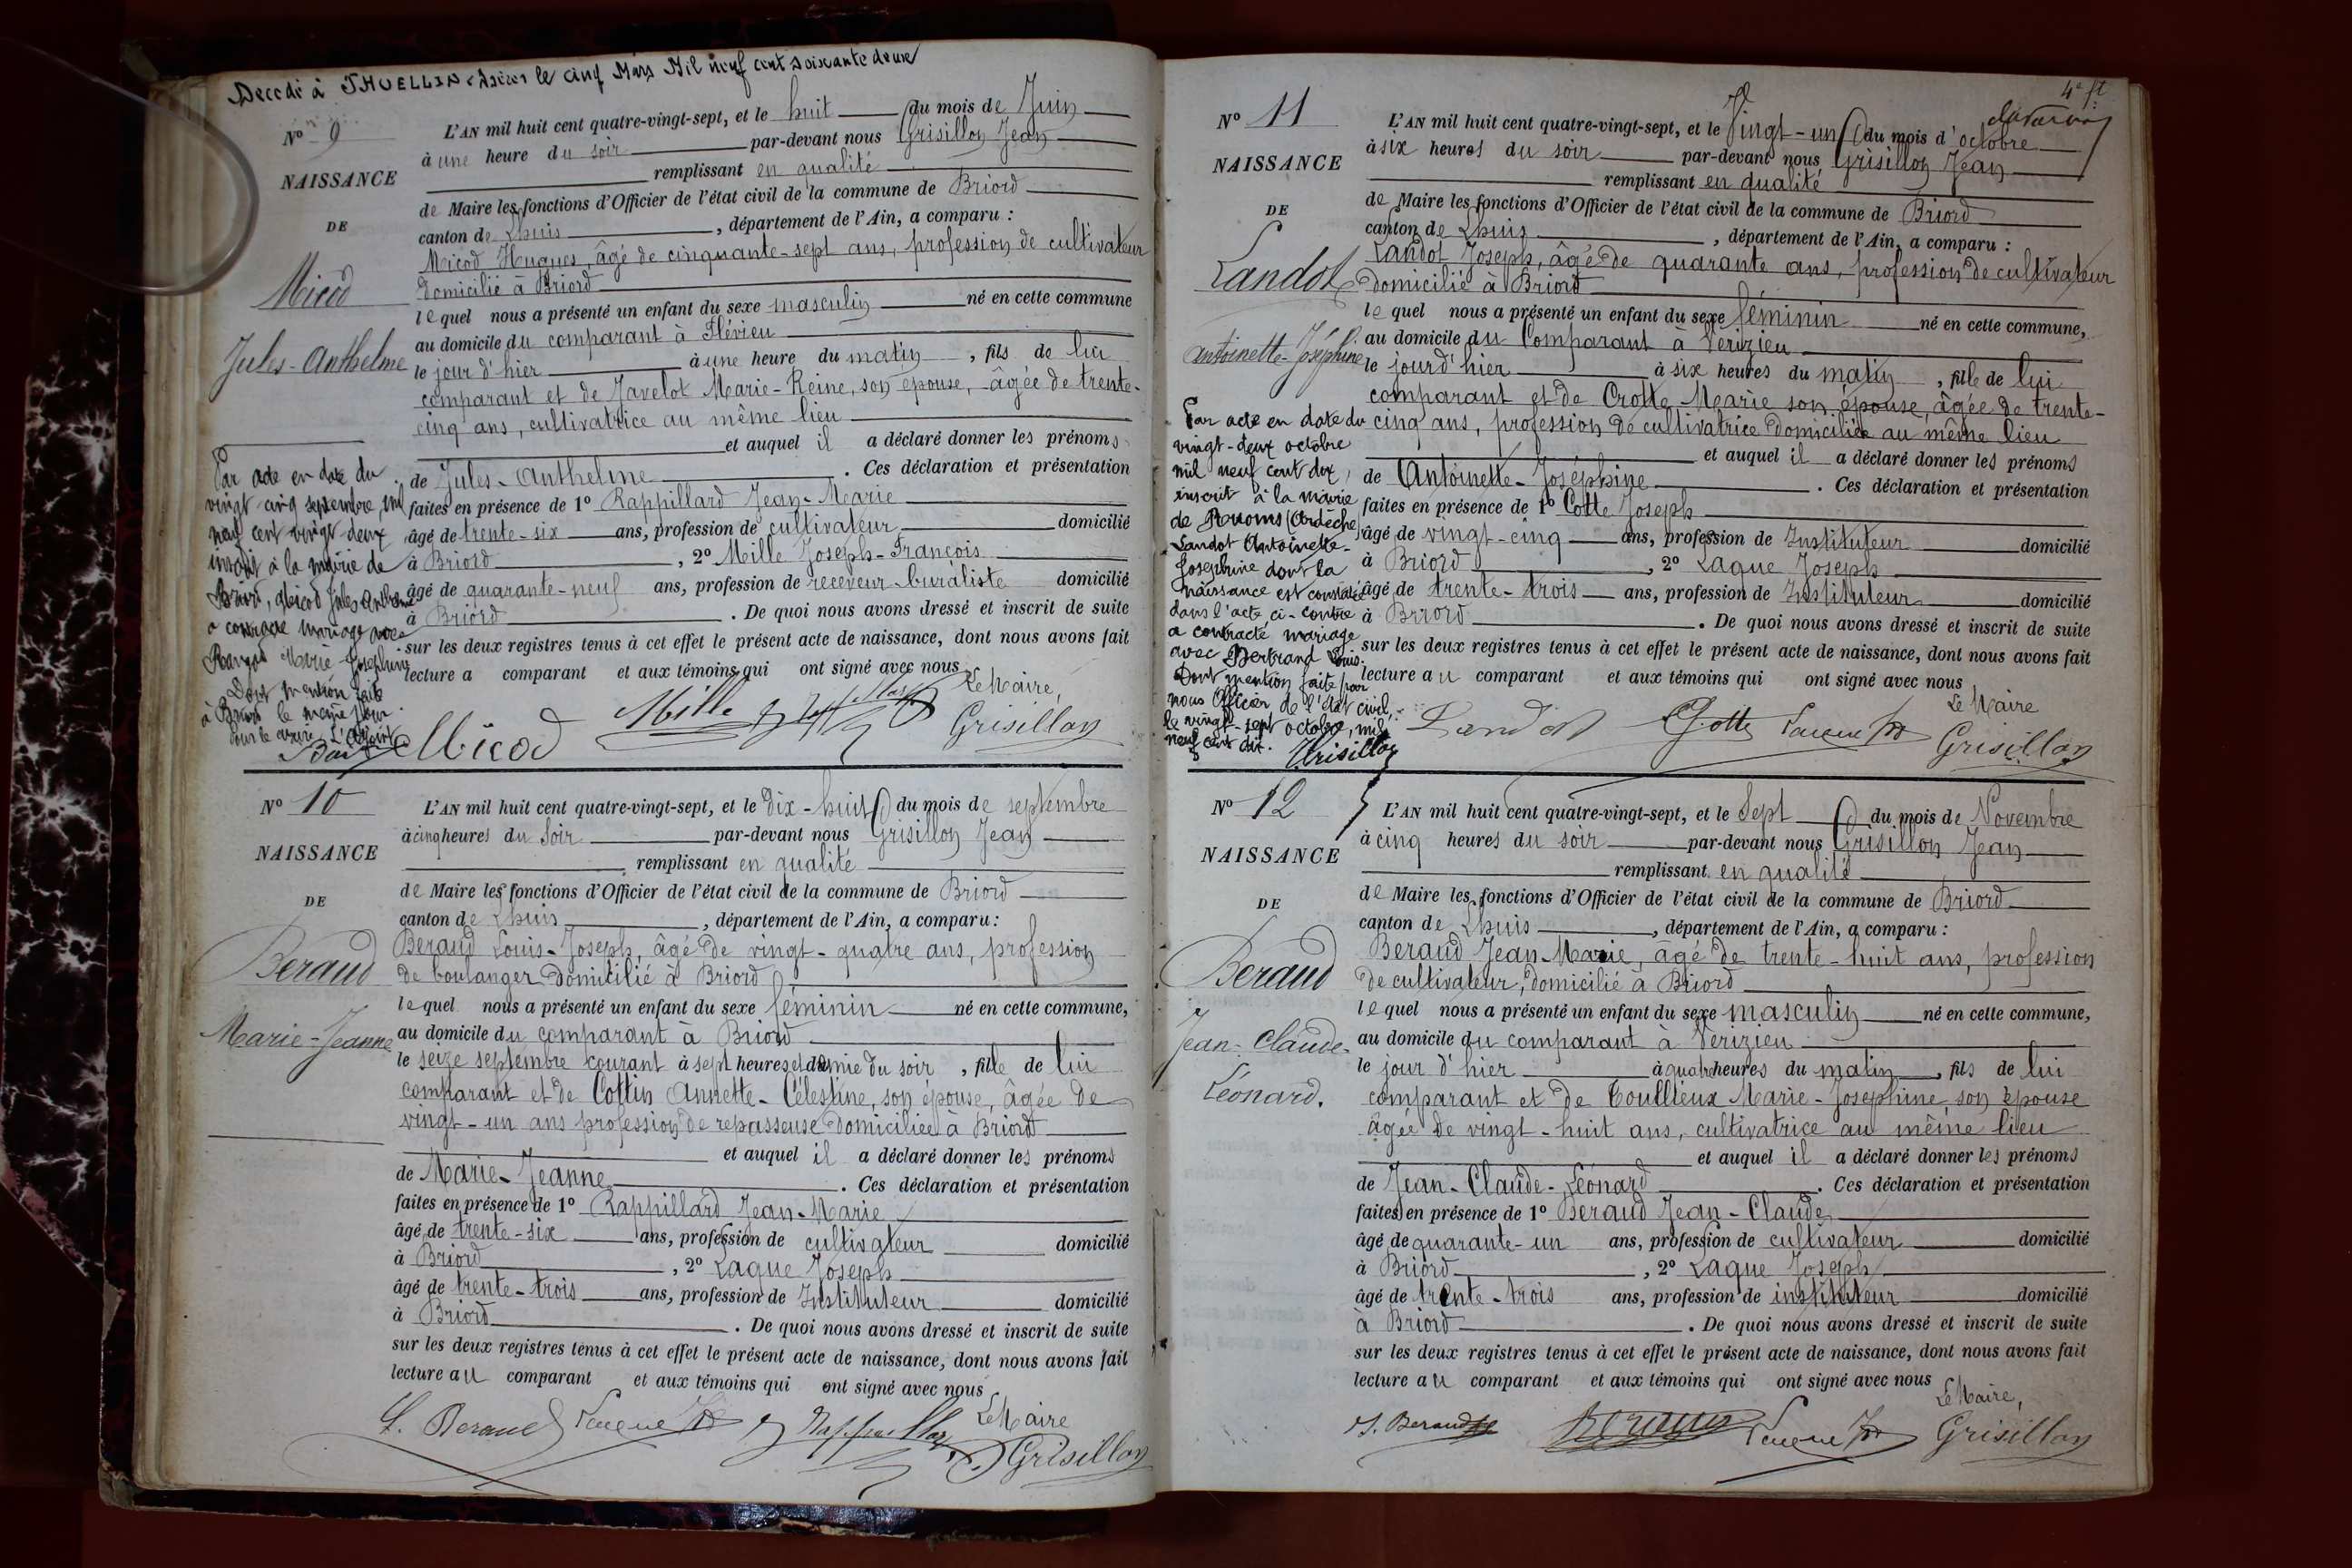 Decedé à THUELLIN Isère le cinq Mars Mil neuf cent soixante deux
N° 9
NAISSANCE
DE
Micod
Jules-Anthelme
L'AN mil huit cent quatre-vingt-sept, et le huit du mois de Juin
à une heure du soir par-devant nous Grisillon Jean
remplissant en qualité
de Maire les fonctions d'Officier de l'état civil de la commune de Briord
canton de Lhuis, département de l'Ain, a comparu :
Micod Hugues, âgé de cinquante-sept ans, profession de cultivateur
domicilié à Briord
lequel nous a présenté un enfant du sexe masculin né en cette commune
au domicile du comparant à Flévieu
le jour d'hier à une heure du matin, fils de lui
comparant et de Javelot Marie-Reine, son épouse, âgée de trente-
cinq ans, cultivatrice au même lieu
et auquel il a déclaré donner les prénoms
de Jules-Anthelme. Ces déclaration et présentation
faites en présence de 1° Rappillard Jean-Marie
âgé de trente-six ans, profession de cultivateur domicilié
à Briord, 2° Mille Joseph-François
âgé de quarante-neuf ans, profession de receveur-buraliste domicilié
à Briord. De quoi nous avons dressé et inscrit de suite
sur les deux registres tenus à cet effet le présent acte de naissance, dont nous avons fait
lecture a comparant et aux témoins qui ont signé avec nous
Le Maire,
Micod Mille Grisillon
Par acte en date du
vingt cinq septembre, mil
neuf cent vingt-deux
inscrit à la mairie de
Briord, Micod Jules Anthelme
a contracté mariage avec
Marie Joséphine
Dont mention faite
à Briord le même jour
Pour le Maire, L'Adjoint
N° 10
NAISSANCE
DE
Beraud
Marie-Jeanne
L'AN mil huit cent quatre-vingt-sept, et le dix-huit du mois de septembre
à cinq heures du soir par-devant nous Grisillon Jean
remplissant en qualité
de Maire les fonctions d'Officier de l'état civil de la commune de Briord
canton de Lhuis, département de l'Ain, a comparu :
Beraud Louis-Joseph, âgé de vingt-quatre ans, profession
de boulanger domicilié à Briord
lequel nous a présenté un enfant du sexe féminin né en cette commune,
au domicile du comparant à Briord
le seize septembre courant à sept heures et demie du soir, fille de lui
comparant et de Cottin Annette-Célestine, son épouse, âgée de
vingt-un ans profession de repasseuse domiciliée à Briord
et auquel il a déclaré donner les prénoms
de Marie-Jeanne. Ces déclaration et présentation
faites en présence de 1° Rappillard Jean-Marie
âgé de trente-six ans, profession de cultivateur domicilié
à Briord, 2° Laque Joseph
âgé de trente-trois ans, profession de Instituteur domicilié
à Briord. De quoi nous avons dressé et inscrit de suite
sur les deux registres tenus à cet effet le présent acte de naissance, dont nous avons fait
lecture au comparant et aux témoins qui ont signé avec nous
Le Maire
L. Beraud Grisillon
4e ft
N° 11
NAISSANCE
DE
Landot
Antoinette-Joséphine
L'AN mil huit cent quatre-vingt-sept, et le Vingt-un du mois d'octobre
à six heures du soir par-devant nous Grisillon Jean
remplissant en qualité
de Maire les fonctions d'Officier de l'état civil de la commune de Briord
canton de Lhuis, département de l'Ain, a comparu :
Landot Joseph, âgé de quarante ans, profession de cultivateur
domicilié à Briord
lequel nous a présenté un enfant du sexe féminin né en cette commune,
au domicile du Comparant à Vérizieu
le jourd'hier à six heures du matin, fille de lui
comparant et de Crotte Marie son épouse, âgée de trente-
cinq ans, profession de cultivatrice domiciliée au même lieu
et auquel il a déclaré donner les prénoms
de Antoinette-Joséphine. Ces déclaration et présentation
faites en présence de 1° Cotte Joseph
âgé de vingt-cinq ans, profession de Instituteur domicilié
à Briord, 2° Laque Joseph
âgé de trente-trois ans, profession de Instituteur domicilié
à Briord. De quoi nous avons dressé et inscrit de suite
sur les deux registres tenus à cet effet le présent acte de naissance, dont nous avons fait
lecture au comparant et aux témoins qui ont signé avec nous
Le Maire
Landot Cotte Grisillon
Par acte en date du
vingt-deux octobre
mil neuf cent dix,
inscrit à la mairie
de Ruoms (Ardèche)
Landot Antoinette-
Joséphine dont la
naissance est constatée
dans l'acte ci-contre
a contracté mariage
avec Bertrand Louis.
Dont mention faite par
nous Officier de l'état civil,
le vingt-sept octobre, mil
neuf cent dix.
Grisillon
N° 12
NAISSANCE
DE
Beraud
Jean-Claude-
Léonard.
L'AN mil huit cent quatre-vingt-sept, et le Sept du mois de Novembre
à cinq heures du soir par-devant nous Grisillon Jean
remplissant en qualité
de Maire les fonctions d'Officier de l'état civil de la commune de Briord
canton de Lhuis, département de l'Ain, a comparu :
Beraud Jean-Marie, âgé de trente-huit ans, profession
de cultivateur, domicilié à Briord
lequel nous a présenté un enfant du sexe masculin né en cette commune,
au domicile du comparant à Vérizieu
le jour d'hier à quatre heures du matin, fils de lui
comparant et de Toullieux Marie-Josephine, son épouse
âgée de vingt-huit ans, cultivatrice au même lieu
et auquel il a déclaré donner les prénoms
de Jean-Claude-Léonard. Ces déclaration et présentation
faites en présence de 1° Beraud Jean-Claude
âgé de quarante-un ans, profession de cultivateur domicilié
à Briord, 2° Laque Joseph
âgé de trente-trois ans, profession de instituteur domicilié
à Briord. De quoi nous avons dressé et inscrit de suite
sur les deux registres tenus à cet effet le présent acte de naissance, dont nous avons fait
lecture au comparant et aux témoins qui ont signé avec nous
Le Maire,
Beraud Grisillon